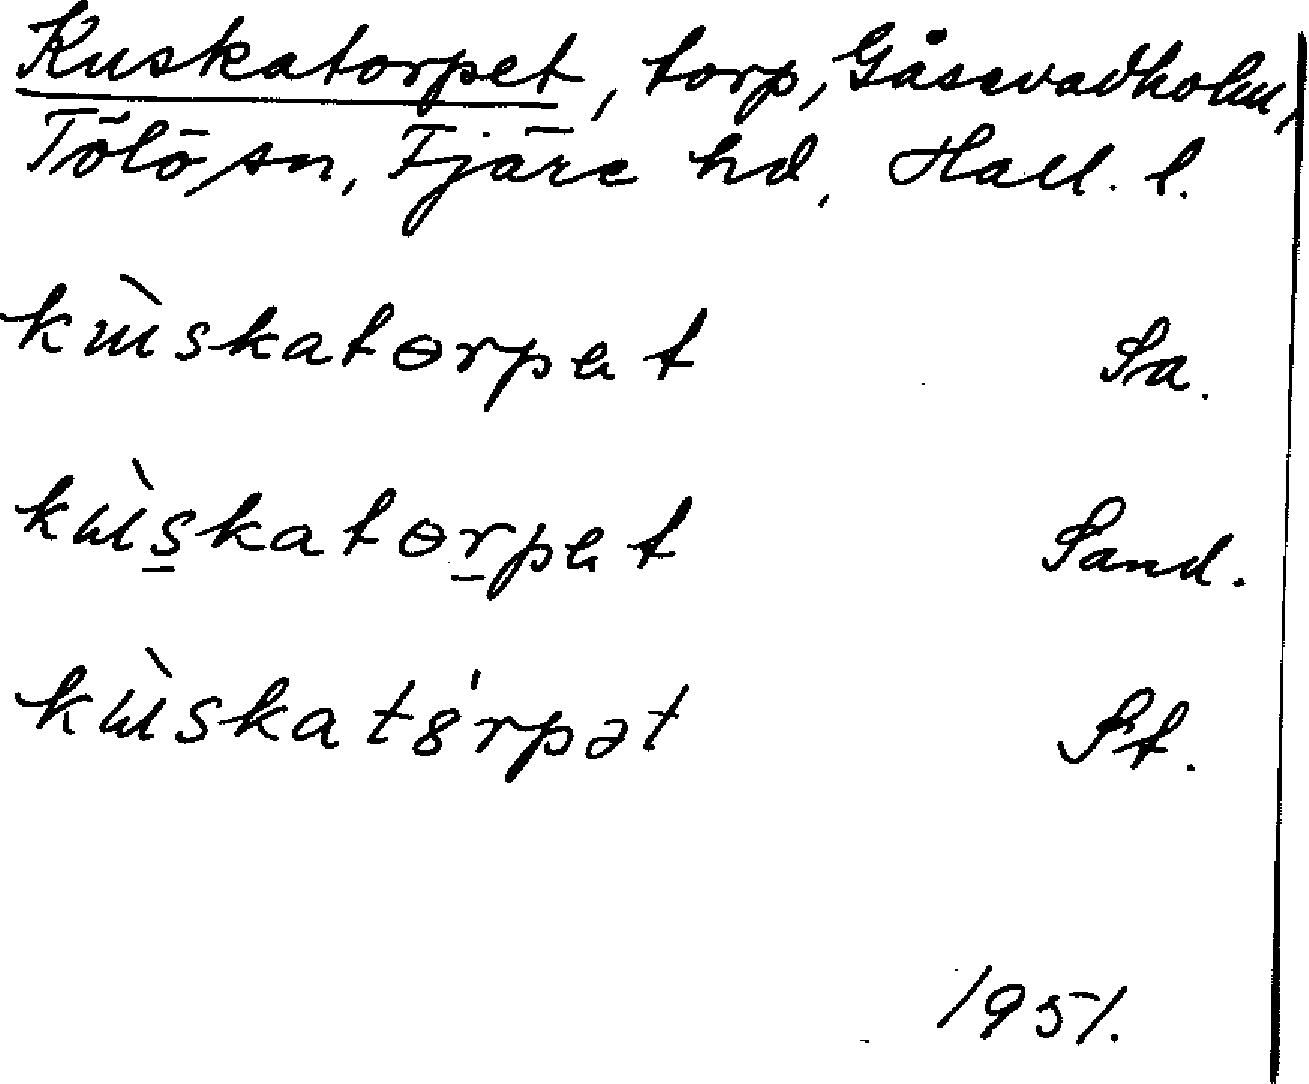 Kuskatorpet, torp, Gåsevadholm,
Tölö sn, Fjäre hd, Hall. l.
kɯ̀skatɵrpet Sa.
kɯ̀s̲katɵr̲pet Sand.
kɯ̀skat8́rpət St.
1951.